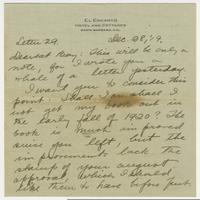 EL ENCANTO
HOTEL AND COTTAGES
SANTA BARBARA, CAL.
Letter 29. Dec. 28, '19.
Dearest Boy: This will be only a
note, for I wrote you a
whale of a letter yesterday.
I want you to consider this
point: Shall I or shall I
not get my book out in
the early fall of 1920? The
book is much improved
since you left, but the
improvements lack the
stamp of your august
approval, which I should
like them to have before put